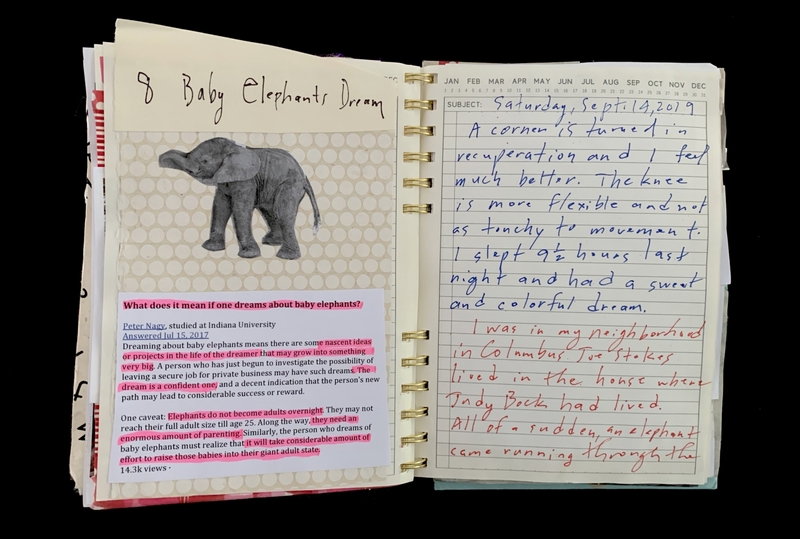 8 Baby Elephants Dream
What does it mean if one dreams about baby elephants?
Peter Nagy, studied at Indiana University
Answered Jul 15, 2017
Dreaming about baby elephants means there are some nascent ideas
or projects in the life of the dreamer that may grow into something
very big. A person who has just begun to investigate the possibility of
leaving a secure job for private business may have such dreams. The
dream is a confident one, and a decent indication that the person's new
path may lead to considerable success or reward.
One caveat: Elephants do not become adults overnight. They may not
reach their full adult size till age 25. Along the way, they need an
enormous amount of parenting. Similarly, the person who dreams of
baby elephants must realize that it will take considerable amount of
effort to raise those babies into their giant adult state.
14.3k views ·
JAN FEB MAR APR MAY JUN JUL AUG SEP OCT NOV DEC
SUBJECT: Saturday, Sept. 14, 2019
A corner is turned in
recuperation and I feel
much better. The knee
is more flexible and not
as touchy to movement.
I slept 9½ hours last
night and had a sweet
and colorful dream.
I was in my neighborhood
in Columbus Joe Stokes
lived in the house where
Judy Bock had lived.
All of a sudden, an elephant
came running through the